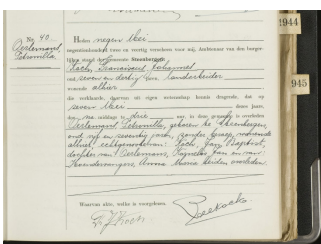 1944
945
No. 40.
Oerlemans,
Petronilla,
Heden negen Mei
negentienhonderd twee en veertig verscheen voor mij, Ambtenaar van den burger-
lijken stand der gemeente Steenbergen:
Koch, Franciscus Johannes
oud zeven en dertig jaren, landarbeider
wonende alhier
die verklaarde, daarvan uit eigen wetenschap kennis dragende, dat op
zeven Mei dezes jaars,
des na middags te drie uur, in deze gemeente is overleden
Oerlemans, Petronilla, geboren te Steenbergen,
oud vijf en zeventig jaren, zonder beroep, wonende
alhier, echtgenoote van Koch, Jan Baptist,
dochter van Oerlemans, Cornelis, en van
Anna Maria, beiden overleden.
Waarvan akte, welke is voorgelezen.
Fr. J. Koch